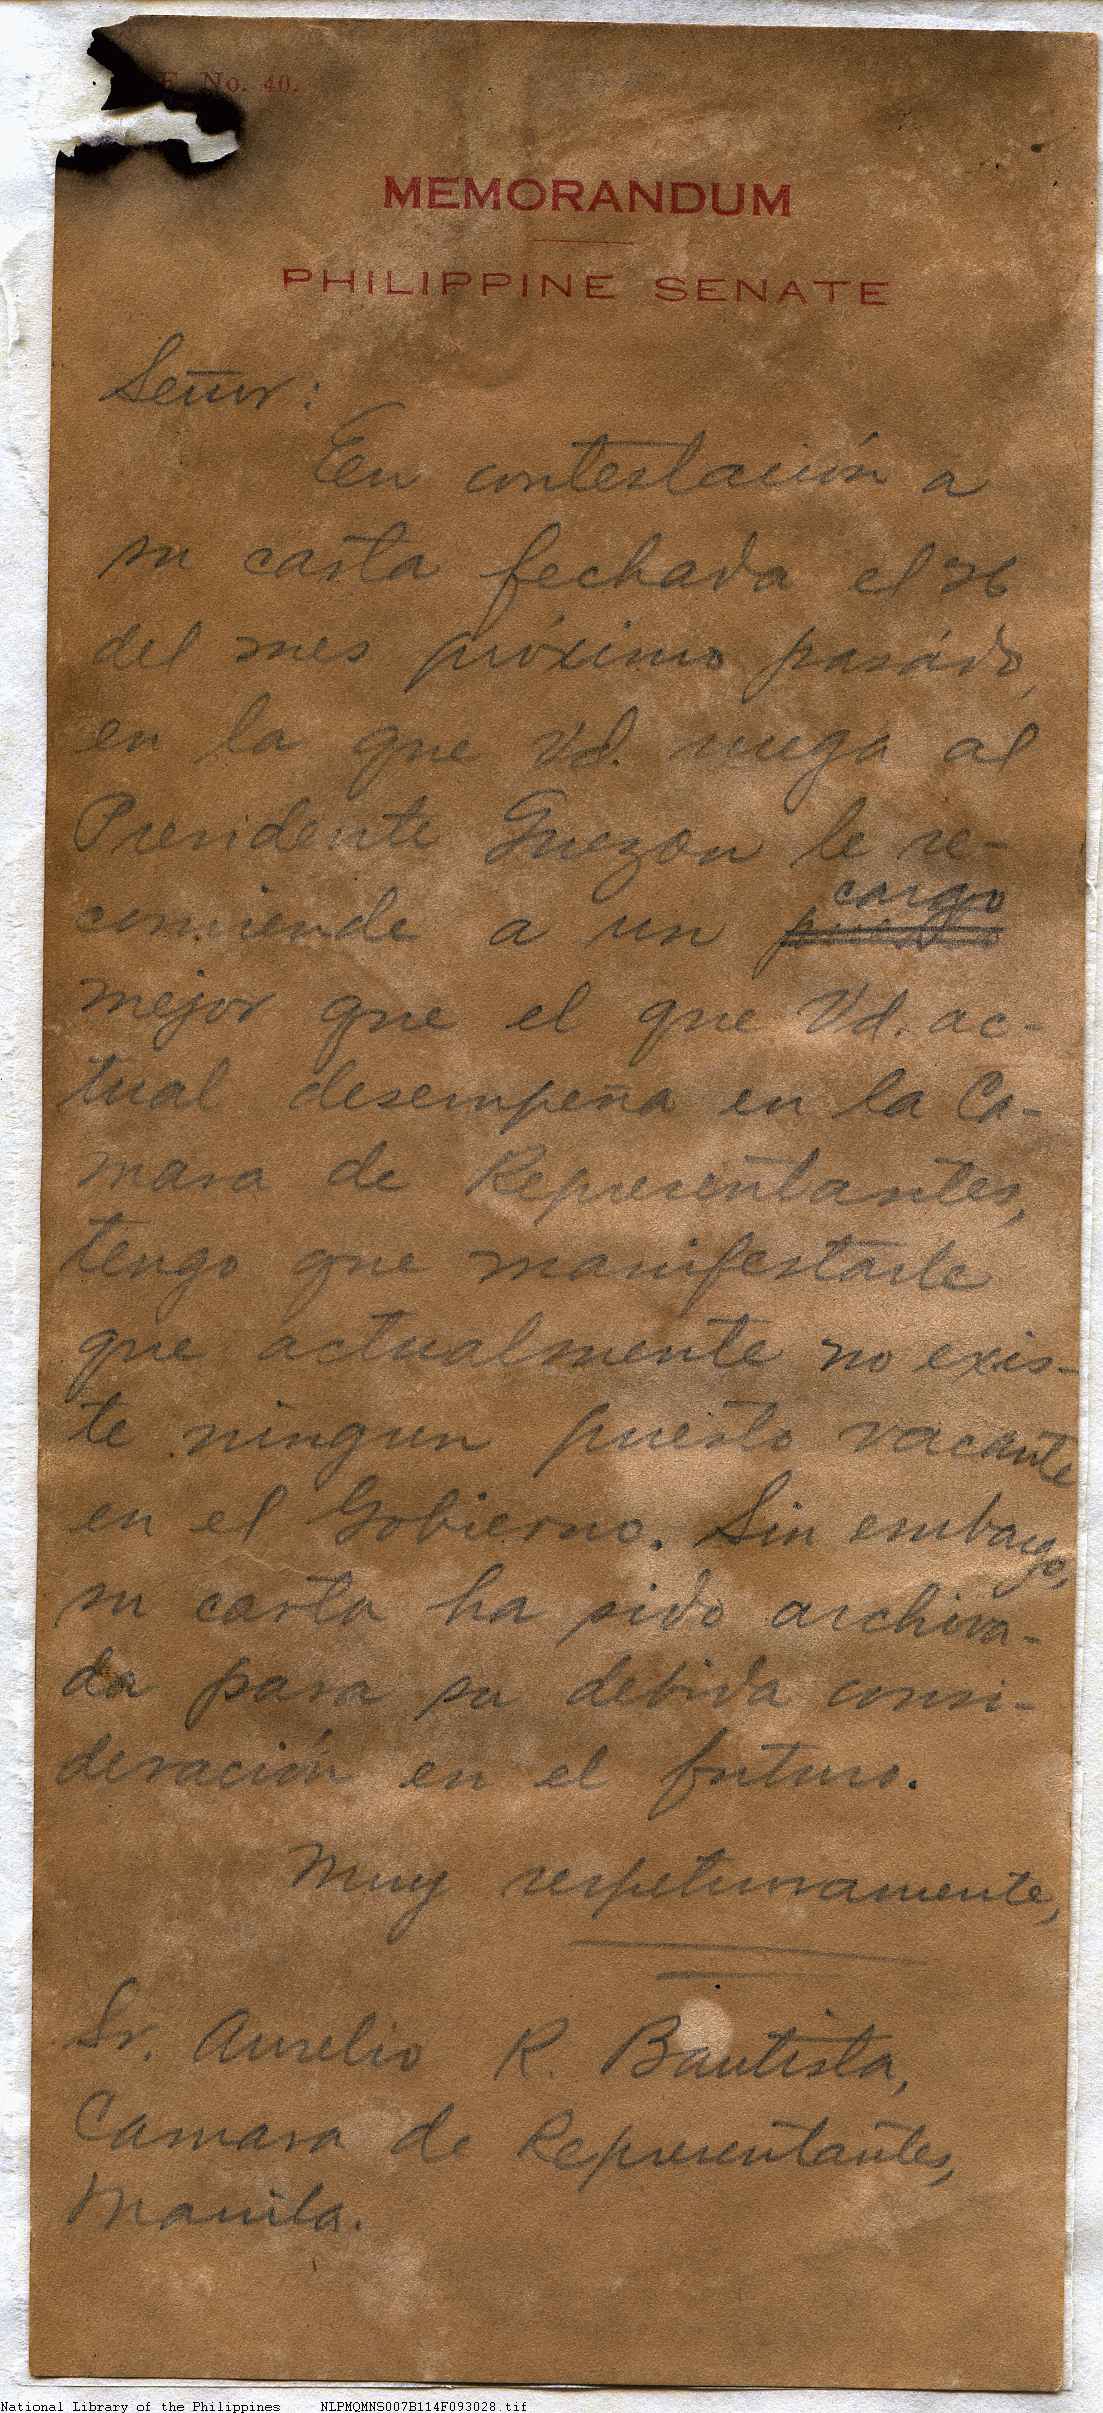 F. No. 40.
MEMORANDUM
PHILIPPINE SENATE
Señor:
En contestación a
su carta fechada el 26
del mes próximo pasado,
en la que Vd. ruega al
Presidente Quezon le re-
cargo
comiende a un puesto
mejor que el que Vd. ac-
tual desempeña en la Ca-
mara de Representantes,
tengo que manifestarle
que actualmente no exis-
te ningun puesto vacante
en el Gobierno. Sin embargo,
su carta ha sido archiva-
da para su debida consi-
deración en el futuro.
Muy respetuosamente,
Sr. Aurelio R. Bautista,
Camara de Representantes,
Manila.
National Library of the Philippines NLPMQMNS007B114F093028.tif